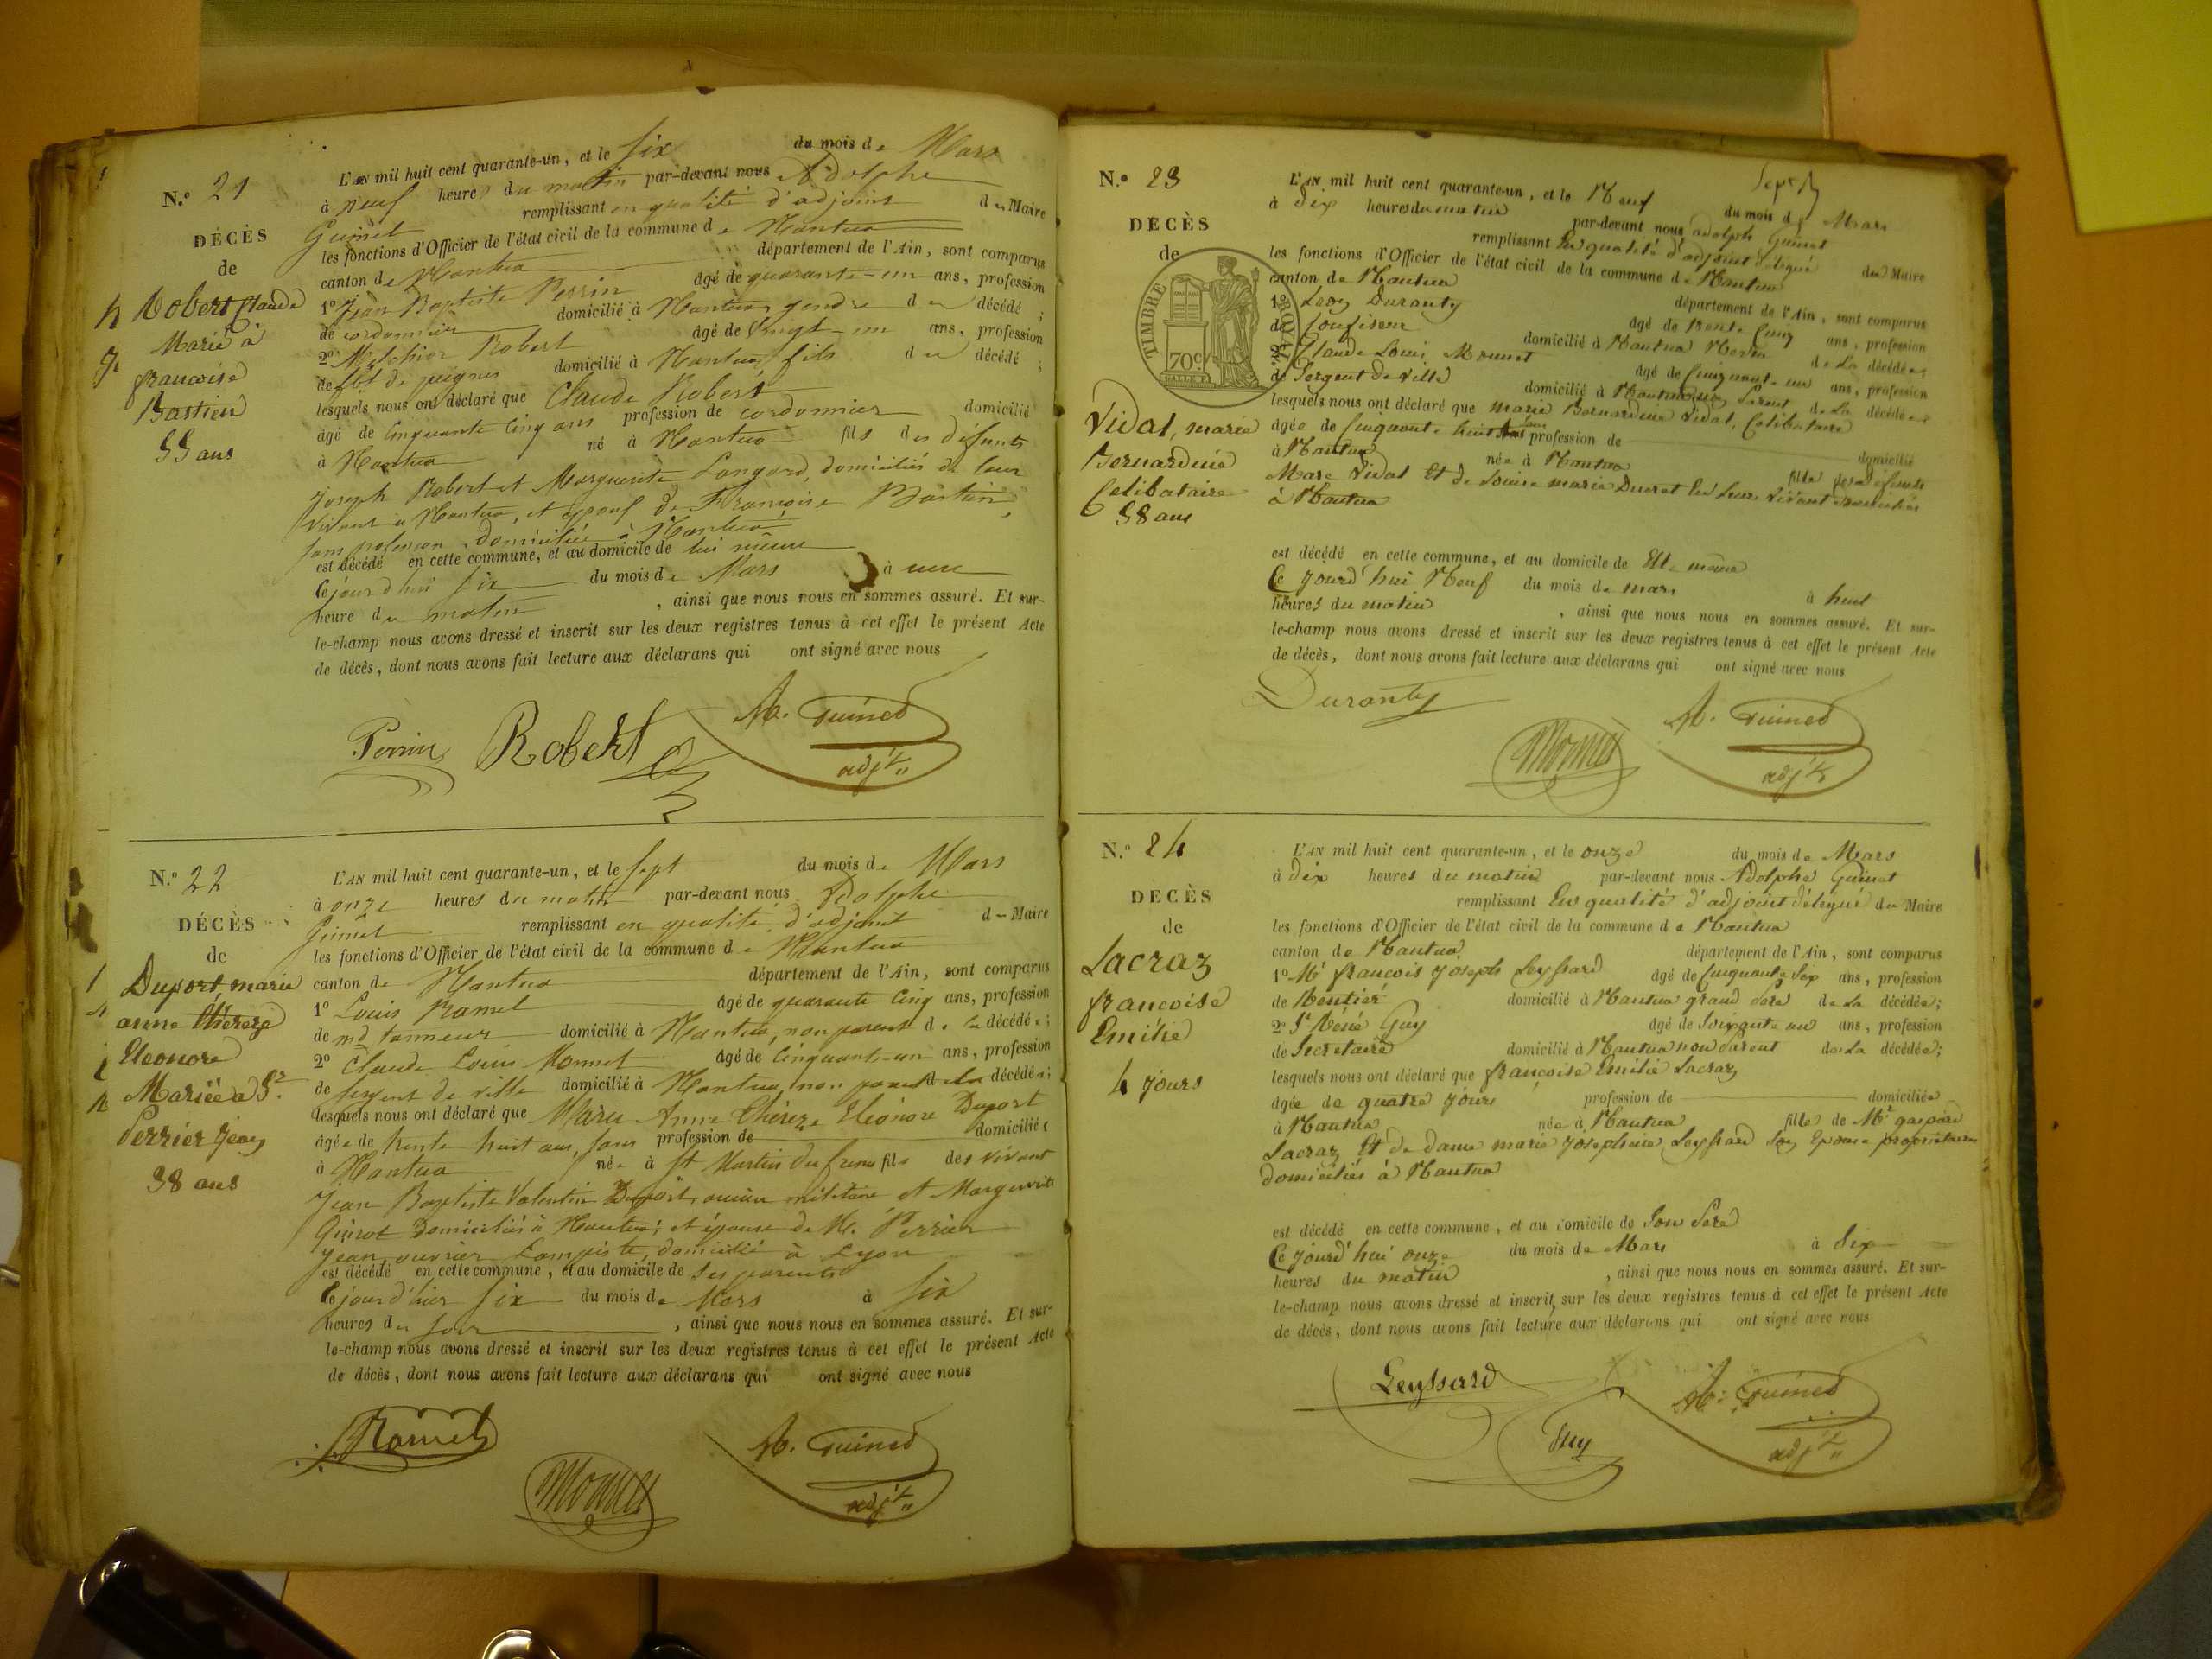 N.° 21
DÉCÈS
de
Robert Claude
Marié à
francoise
Bastien
55 ans
L'AN mil huit cent quarante-un, et le six du mois de Mars
à neuf heures du matin par-devant nous Adolphe
Guinet remplissant en qualité d'adjoint du Maire
les fonctions d'Officier de l'état civil de la commune de Nantua
canton de Nantua département de l'Ain, sont comparus
1° Jean Baptiste Perrin âgé de quarante-un ans, profession
de cordonnier domicilié à Nantua gendre du décédé;
2° Melchior Robert âgé de vingt-un ans, profession
de fbt de peignes domicilié à Nantua, fils du décédé;
lesquels nous ont déclaré que Claude Robert
âgé de cinquante cinq ans profession de cordonnier domicilié
à Nantua né à Nantua fils des défunts
Joseph Robert et Marguerite Langard, domiciliés de leur
vivant à Nantua, et époux de Françoise Bastien,
sans profession, domiciliée à Nantua
est décédé en cette commune, et au domicile de lui même
Cejourd'hui six du mois de Mars à une
heure du matin, ainsi que nous nous en sommes assuré. Et sur-
le-champ nous avons dressé et inscrit sur les deux registres tenus à cet effet le présent Acte
de décès, dont nous avons fait lecture aux déclarans qui ont signé avec nous
Perrin Robert A. Guinet
adjt
N.° 22
DÉCÈS
de
Duport marie
anne thérèze
Eleonore
Mariée a Sr.
Perrier Jean
38 ans
L'AN mil huit cent quarante-un, et le sept du mois de Mars
à onze heures du matin par-devant nous Adolphe
Guinet remplissant en qualité d'adjoint d- Maire
les fonctions d'Officier de l'état civil de la commune de Nantua
canton de Nantua département de l'Ain, sont comparus
1° Louis Ramel âgé de quarante cinq ans, profession
de md tanneur domicilié à Nantua, non parent de la décédée;
2° Claude Louis Monnet âgé de cinquante-un ans, profession
de sergent de ville domicilié à Nantua, non parent de la décédée;
lesquels nous ont déclaré que Marie Anne Thérèze Eléonore Duport
âgée de trente huit ans, sans profession de domiciliée
à Nantua née à St Martin du frene fille des vivant
Jean Baptiste Valentin Duport, ancien militaire et Marguerite
Guirot domiciliés à Nantua; et épouse de M. Perrier
Jean, ouvrier Lampiste, domicilié à Lyon
est décédé en cette commune, et au domicile de ses parents
Le jour d'hier six du mois de Mars à six
heures du soir, ainsi que nous nous en sommes assuré. Et sur-
le-champ nous avons dressé et inscrit sur les deux registres tenus à cet effet le présent Acte
de décès, dont nous avons fait lecture aux déclarans qui ont signé avec nous
Ramel A. Guinet
Monnet adjt
N.° 23
DECÈS
de
TIMBRE ROYAL
70c
Vidal, marie
Bernardine
Celibataire
58 ans
L'AN mil huit cent quarante-un, et le Neuf du mois de Mars
à Dix heures du matin par-devant nous adolph Guinet
remplissant En qualité d'adjoint délégué du Maire
les fonctions d'Officier de l'état civil de la commune de Nantua
canton de Nantua département de l'Ain, sont comparus
1° Leon Duranty âgé de trente Cinq ans, profession
de Confiseur domicilié à Nantua de la décédée;
2° Claude Louis Monnet âgé de Cinquante un ans, profession
de Sergent de Ville domicilié à Nantua non Parent de la décédée
lesquels nous ont déclaré que marie Bernardine Vidal, Celibataire
âgée de Cinquante huit ans profession de domicilié
à Nantua née à Nantua fille
Marc Vidal Et de Louise marie Ducret De Leur vivant domiciliés
à Nantua
est décédé en cette commune, et au domicile de Elle même
Ce Jourd'hui Neuf du mois de mars à huit
heures du matin, ainsi que nous nous en sommes assuré. Et sur-
le-champ nous avons dressé et inscrit sur les deux registres tenus à cet effet le présent Acte
de décès, dont nous avons fait lecture aux déclarans qui ont signé avec nous
Duranty A. Guinet
Monnet adjt
N.° 24
DECÈS
de
Lacraz
francoise
Emilie
4 Jours
L'AN mil huit cent quarante-un, et le onze du mois de Mars
à Dix heures du matin par-devant nous Adolphe Guinet
remplissant En qualité d'adjoint délegué du Maire
les fonctions d'Officier de l'état civil de la commune de Nantua
canton de Nantua département de l'Ain, sont comparus
1° Mr françois Joseph Leyssard âgé de Cinquante Six ans, profession
de Rentier domicilié à Nantua grand Pere de la décédée;
2° Sr Réné Guy âgé de Soixante un ans, profession
de Secretaire domicilié à Nantua non Parent de la décédée;
lesquels nous ont déclaré que françoise Emilie Lacraz
âgée de quatre Jours profession de domiciliée
à Nantua née à Nantua fille de Mr gaspard
Lacraz Et de dame marie Josephine Leyssard Son Epouse propriétaires
domiciliés à Nantua
est décédé en cette commune, et au domicile de Son Pere
Ce Jourd'hui onze du mois de Mars à Six
heures du matin, ainsi que nous nous en sommes assuré. Et sur-
le-champ nous avons dressé et inscrit sur les deux registres tenus à cet effet le présent Acte
de décès, dont nous avons fait lecture aux déclarans qui ont signé avec nous
Leyssard A. Guinet
Guy adjt